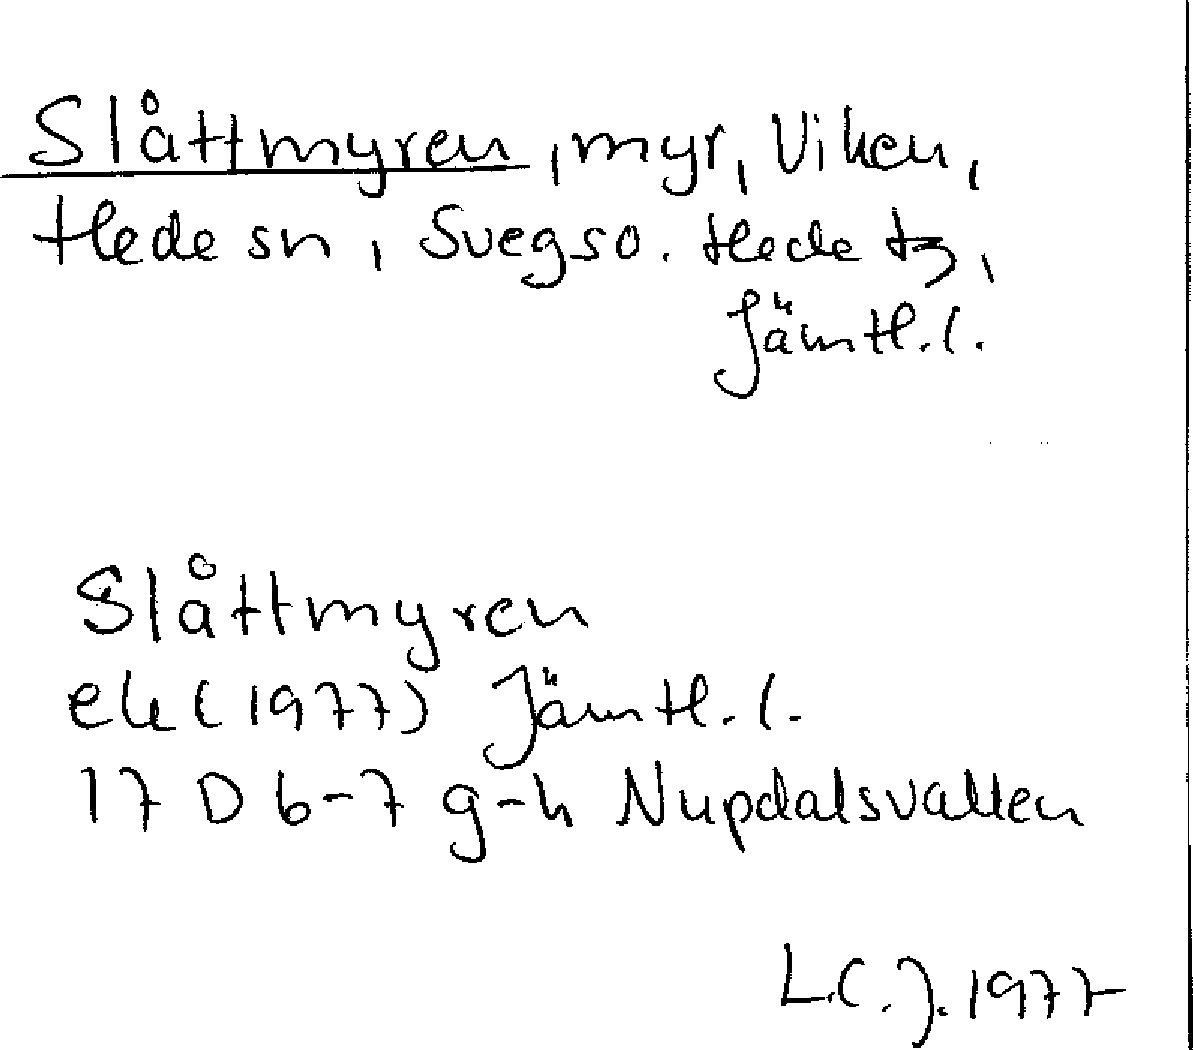 Slåttmyren, myr, Viken,
Hede sn, Svegs o. Hede tg,
Jämtl. l.
Slåttmyren
ek (1977) Jämtl. l.
17 D 6-7 g-h Nupdalsvallen
L.C.J. 1977